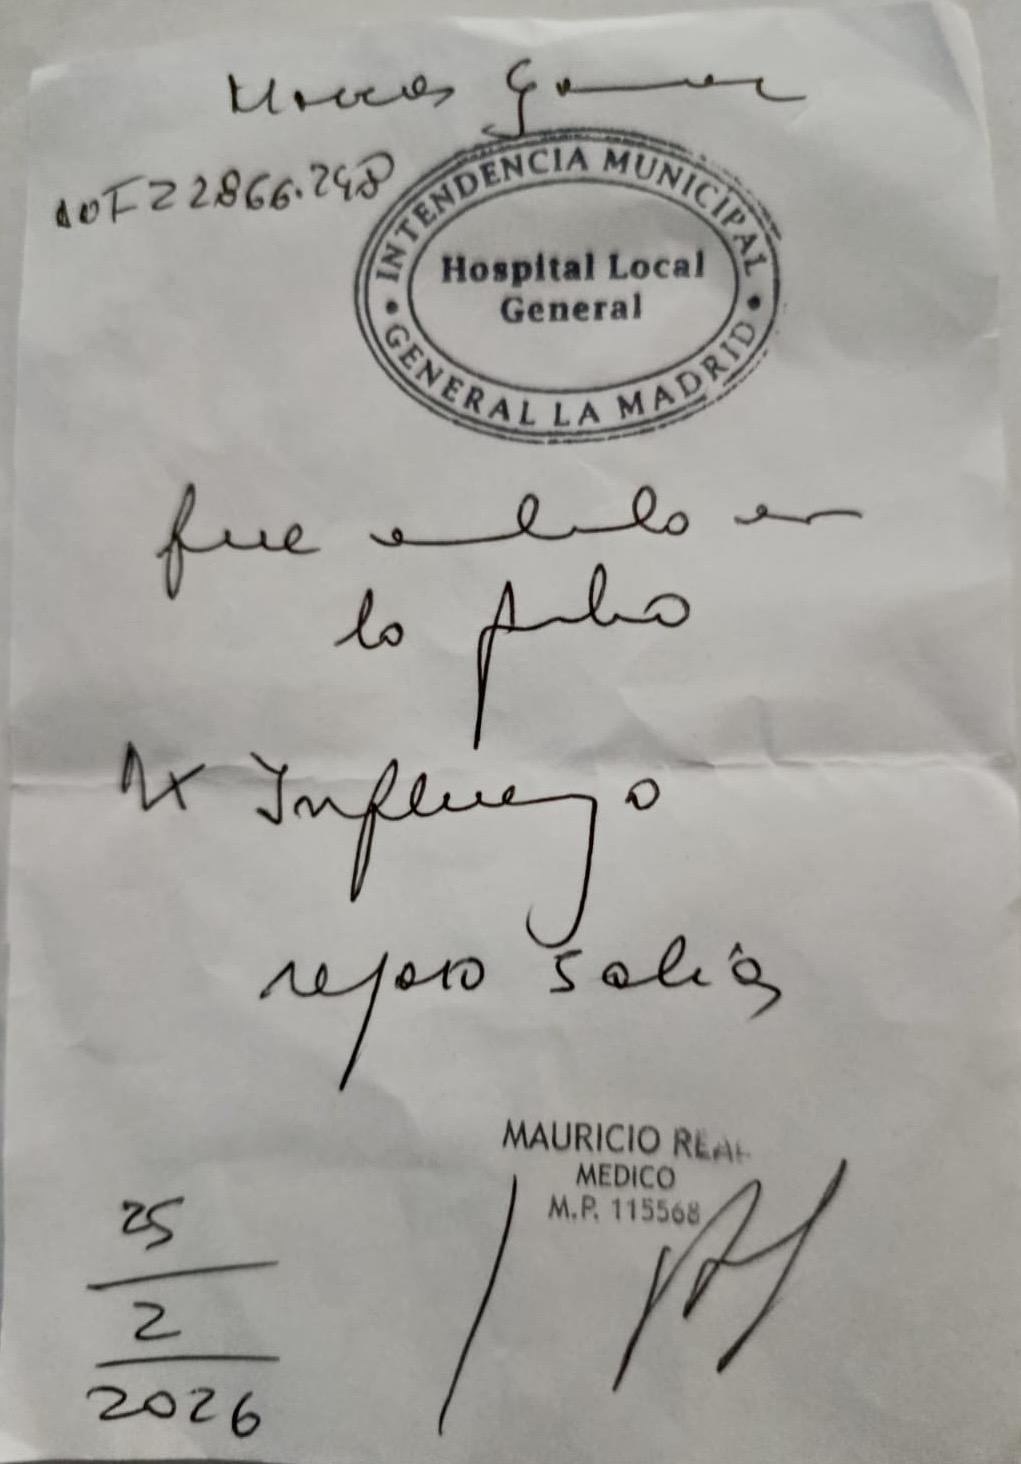 Marcos Gomez
22866.248
INTENDENCIA MUNICIPAL
Hospital Local
General
GENERAL LA MADRID
fue en
la
Dx Influenza
reposo
MAURICIO REAL
MEDICO
M.P. 115568
25
2
2026